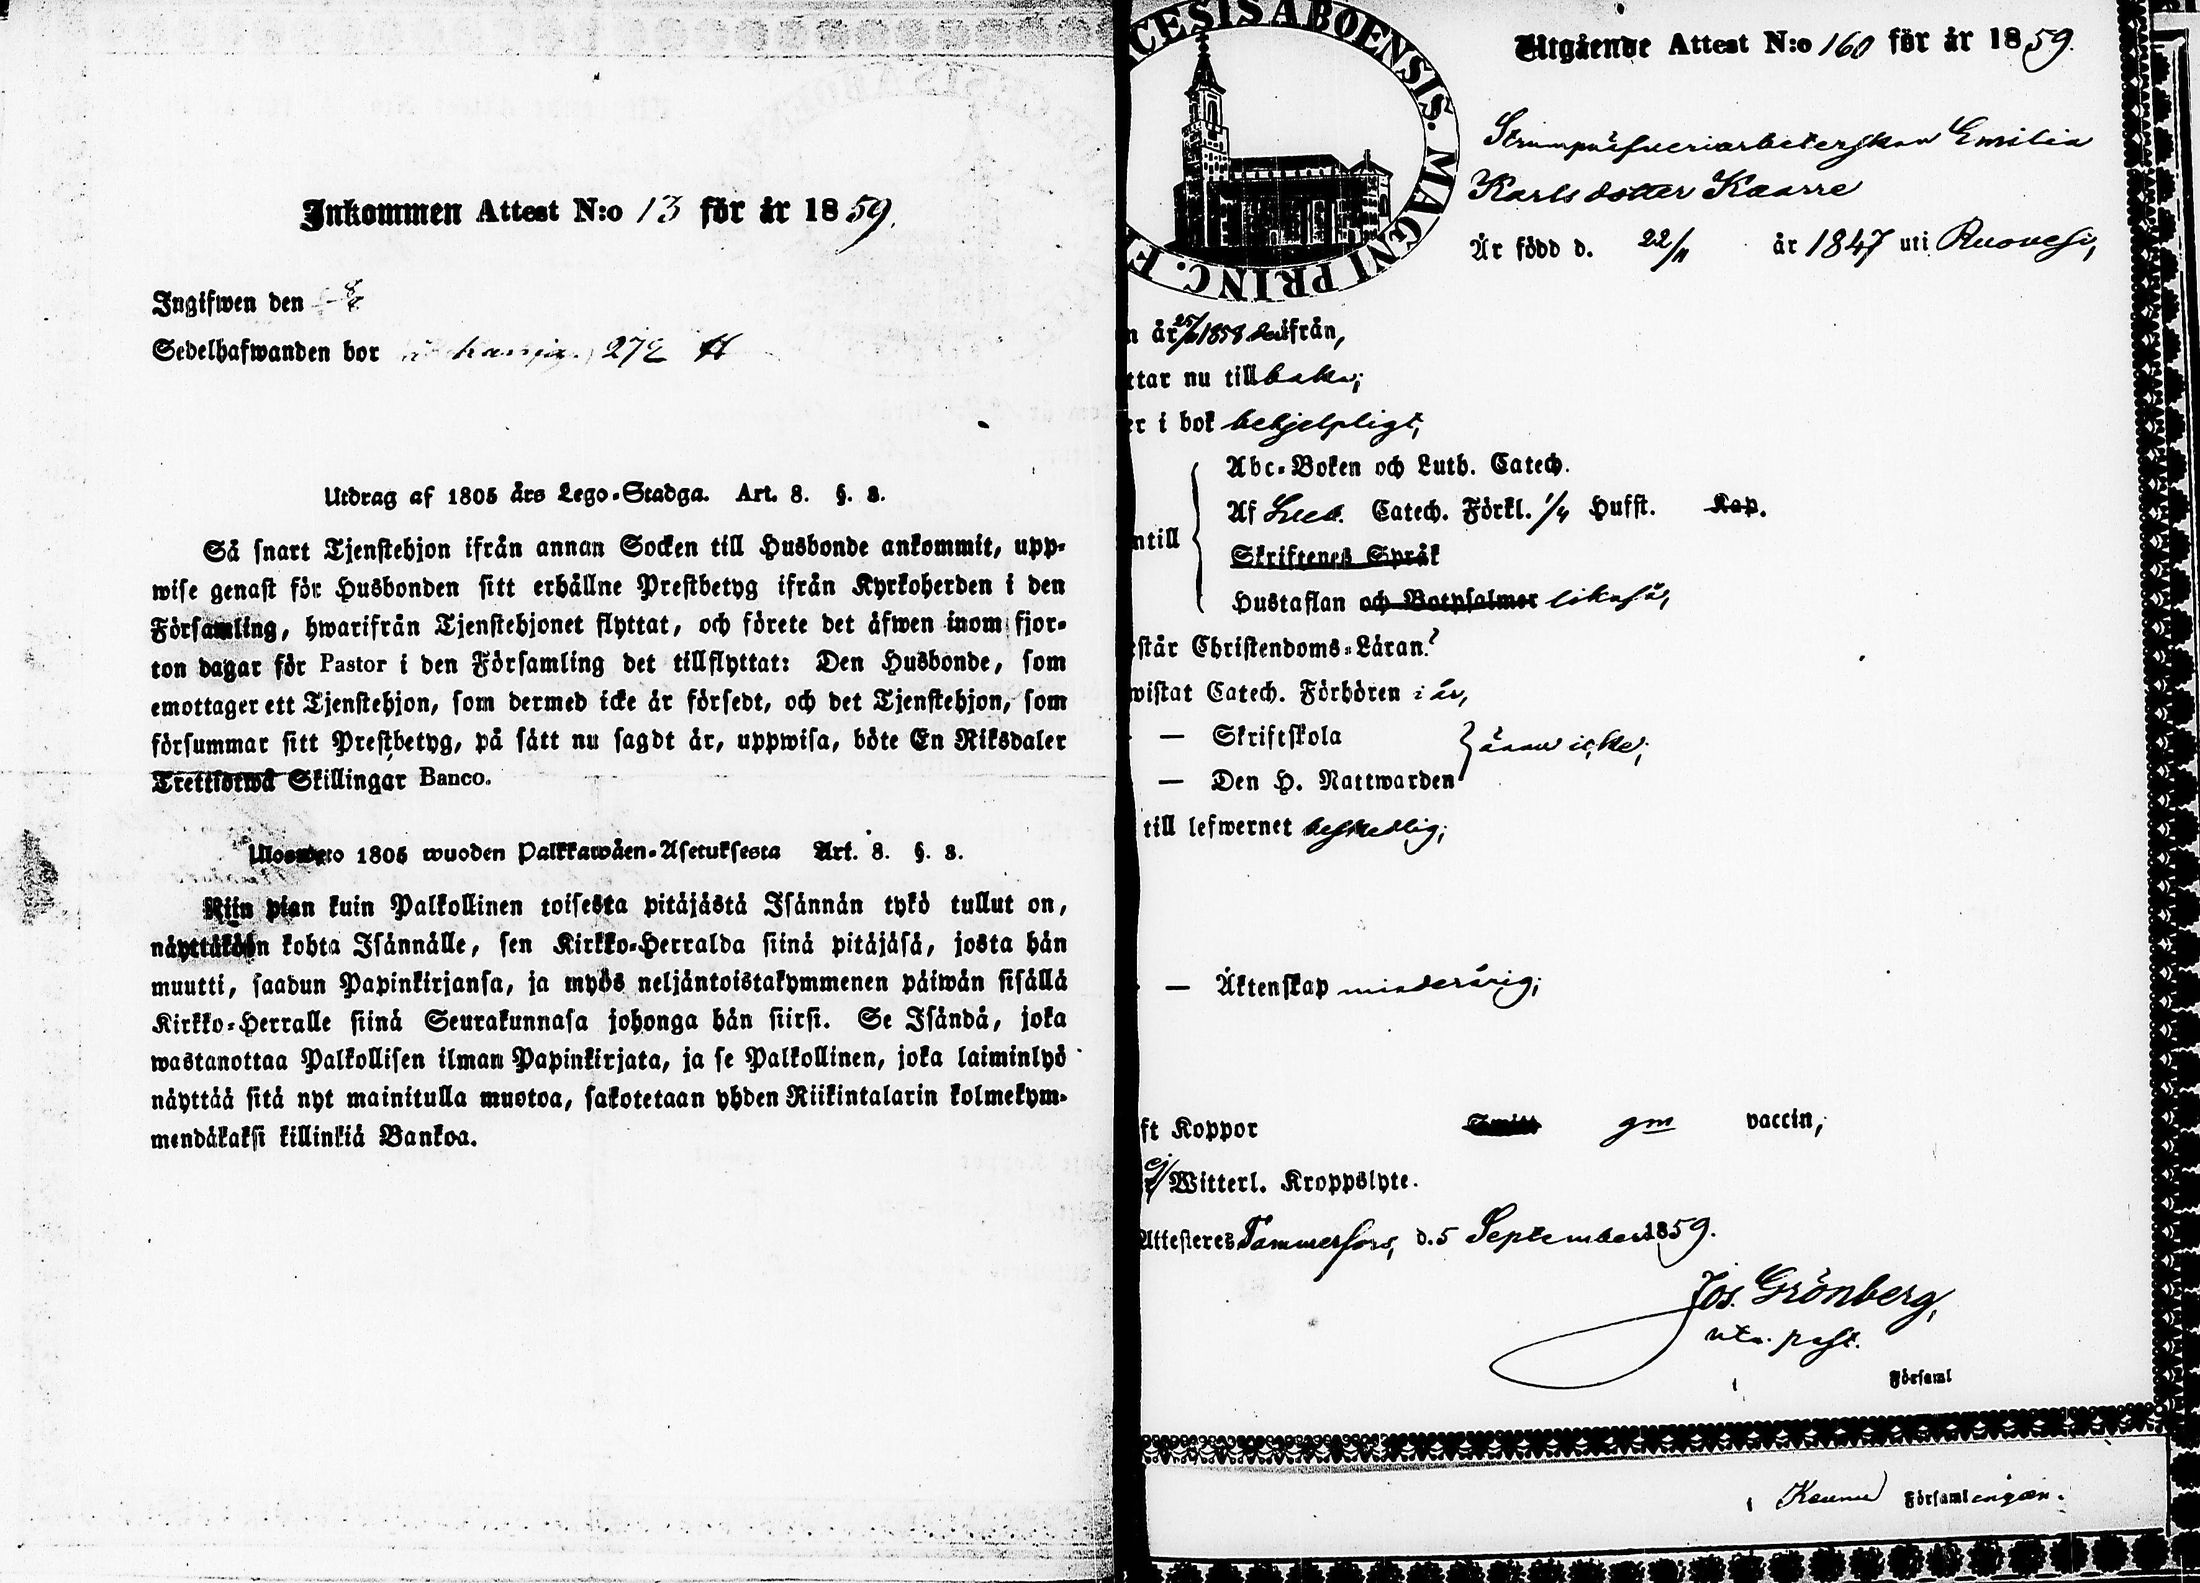 Inkommen Attest N:o 13 för år 1859.
Ingifwen den
Sedelhafwanden bor 272
Utdrag af 1805 års Lego-Stadga. Art. 8. §. 8.
Så snart Tjenstehjon ifrån annan Socken till Husbonde ankommit, upp-
wise genast för Husbonden sitt erhållne Prestbetyg ifrån Kyrkoherden i den
Församling, hwarifrån Tjenstehjonet flyttat, och förete det äfwen inom fjor-
ton dagar för Pastor i den Församling det tillflyttat: Den Husbonde, som
emottager ett Tjenstehjon, som dermed icke är försedt, och det Tjenstehjon, som
försummar sitt Prestbetyg, på sätt nu sagdt är, uppwisa, böte En Riksdaler
Trettiotwå Skillingar Banco.
Ulosweto 1805 wuoden Palkkawäen-Asetuksesta Art. 8. §. 8.
Niin pian kuin Palkollinen toisesta pitäjästä Isännän tykö tullut on,
näyttäköön kohta Isännälle, sen Kirkko-Herralda siinä pitäjäsä, josta hän
muutti, saadun Papinkirjansa, ja myös neljäntoistakymmenen päiwän sisällä
Kirkko-Herralle siinä Seurakunnasa johonga hän siirsi. Se Isändä, joka
wastanottaa Palkollisen ilman Papinkirjata, ja se Palkollinen, joka laiminlyö
näyttää sitä nyt mainitulla muotoa, sakotetaan yhden Riikintalarin kolmekym-
mendäkaksi killinkiä Bankoa.
CESIS ABOENSIS. MAGNI PRINC. F
Utgående Attest N:o 160 för år 1859.
Emilia
Karlsdotter Kaarre
Är född d. 22/11 år 1847 uti Ruovesi,
n år 1858 ifrån,
ttar nu tillbaka;
er i bok behjelpligt,
Abc-Boken och Luth. Catech.
Af Catech. Förkl. 1/4 Hufst. Kap.
ntill
Skriftenes Språk
Hustaflan och Botpsalmer likaså,
estår Christendoms-Läran?
wistat Catech. Förhören i år,
— Skriftskola
ännu icke;
— Den H. Nattwarden
till lefwernet beskedlig;
— Äktenskap minderårig;
ft Koppor gm vaccin;
ej Witterl. Kroppslyte.
Attesteres Tammerfors, d. 5 September 1859.
Jos. Grönberg,
past.
Församl
i Församlingen.